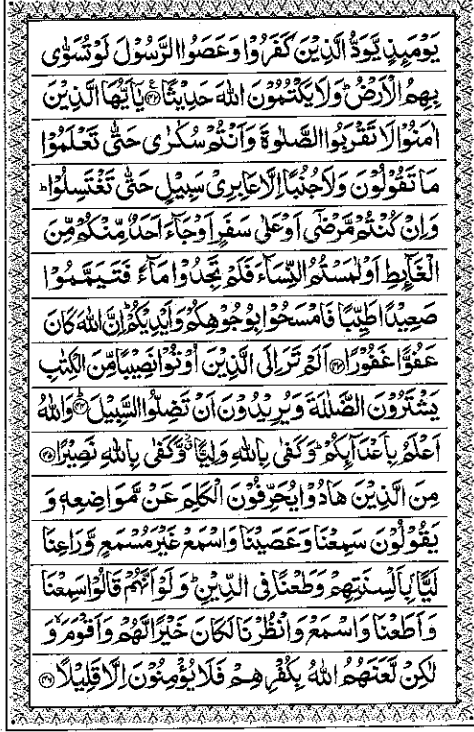 يَوْمَئِذٍ يَّوَدُّ الَّذِيْنَ كَفَرُوْا وَعَصَوُا الرَّسُوْلَ لَوْ تُسَوّٰى
بِهِمُ الْاَرْضُ ؕ وَلَا يَكْتُمُوْنَ اللّٰهَ حَدِيْثًا ﴿۴۲﴾ ع يٰۤاَيُّهَا الَّذِيْنَ
اٰمَنُوْا لَا تَقْرَبُوا الصَّلٰوةَ وَاَنْتُمْ سُكَارٰى حَتّٰى تَعْلَمُوْا
مَا تَقُوْلُوْنَ وَلَا جُنُبًا اِلَّا عَابِرِيْ سَبِيْلٍ حَتّٰى تَغْتَسِلُوْا ؕ
وَاِنْ كُنْتُمْ مَّرْضٰۤى اَوْ عَلٰى سَفَرٍ اَوْ جَآءَ اَحَدٌ مِّنْكُمْ مِّنَ
الْغَآئِطِ اَوْ لٰمَسْتُمُ النِّسَآءَ فَلَمْ تَجِدُوْا مَآءً فَتَيَمَّمُوْا
صَعِيْدًا طَيِّبًا فَامْسَحُوْا بِوُجُوْهِكُمْ وَاَيْدِيْكُمْ ؕ اِنَّ اللّٰهَ كَانَ
عَفُوًّا غَفُوْرًا ﴿۴۳﴾ اَلَمْ تَرَ اِلَى الَّذِيْنَ اُوْتُوْا نَصِيْبًا مِّنَ الْكِتٰبِ
يَشْتَرُوْنَ الضَّلٰلَةَ وَيُرِيْدُوْنَ اَنْ تَضِلُّوا السَّبِيْلَ ﴿۴۴﴾ؕ وَاللّٰهُ
اَعْلَمُ بِاَعْدَآئِكُمْ ؕ وَكَفٰى بِاللّٰهِ وَلِيًّا ۗ وَّكَفٰى بِاللّٰهِ نَصِيْرًا ﴿۴۵﴾
مِنَ الَّذِيْنَ هَادُوْا يُحَرِّفُوْنَ الْكَلِمَ عَنْ مَّوَاضِعِهٖ وَ
يَقُوْلُوْنَ سَمِعْنَا وَعَصَيْنَا وَاسْمَعْ غَيْرَ مُسْمَعٍ وَّرَاعِنَا
لَيًّۢا بِاَلْسِنَتِهِمْ وَطَعْنًا فِى الدِّيْنِ ؕ وَلَوْ اَنَّهُمْ قَالُوْا سَمِعْنَا
وَاَطَعْنَا وَاسْمَعْ وَانْظُرْنَا لَكَانَ خَيْرًا لَّهُمْ وَاَقْوَمَ ۙ وَ
لٰكِنْ لَّعَنَهُمُ اللّٰهُ بِكُفْرِهِمْ فَلَا يُؤْمِنُوْنَ اِلَّا قَلِيْلًا ﴿۴۶﴾